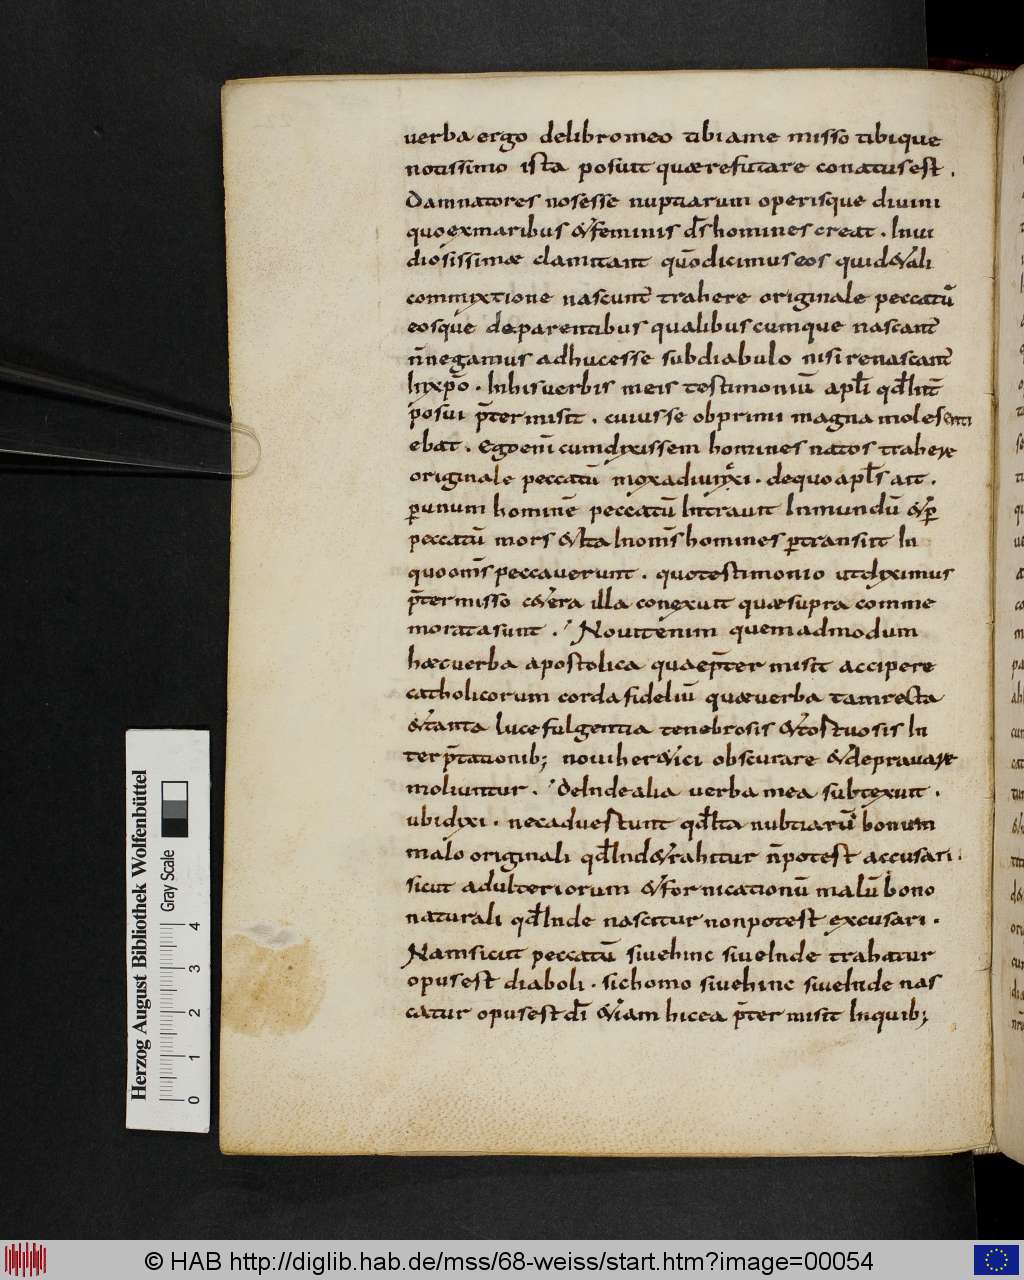 verba ergo delibro meo tibi ame misso tibique
notissimo ista posuit quæ refutare conatus est .
Damnatores nos esse nuptiarum operisque divini
quo ex maribus & feminis d̄s homines creat . Invi
diosissimæ clamitant quōdicimus eos qui d& ali
commixtione nascunt̄ trahere originale peccatū
eosque de parentibus qualibuscumque nascant̄
n̄negamus adhuc esse sub diabulo nisi renascant̄
Inxpō . In his verbis meis testimoniū apłi qđ Int̄
posui p̄termisit . cuius se obprimi magna mole senti
ebat . ego enī cum dixissem homines natos trahere
originale peccatū mox adiunxi . de quo apłs ait .
ꝑ unum hominē peccatū Intravit In mundū & ꝑ
peccatū mors & Ita In om̄s homines ꝑtransiit In
quo om̄s peccaverunt . quo testimonio ut diximus
p̄termisso c&era illa conexuit quæ supra comme
morata sunt . Novit enim quem admodum
hæc verba apostolica quae p̄termisit accipere
catholicorum corda fideliū quæ verba tam recta
& tanta luce fulgentia tenebrosis & tostuosis In
terp̄tationib; novi her&ici obscurare & depravare
moliuntur . DeInde alia verba mea subtexuit .
ubi dixi . nec advestunt qđ Ita nubtiarū bonum
malo originali qđ Ind& rahitur n̄ potest accusari .
sicut adulteriorum & fornicationū malū bono
naturali qđ Inde nascitur non potest excusari .
Nam sicut peccatū sive hinc sive Inde trahatur
opus est diaboli . sic homo sive hinc sive Inde nas
catur opus est dī &iam hic ea p̄termisit In quib;
Herzog August Bibliothek Wolfenbüttel
Gray Scale
0 1 2 3 4
© HAB http://diglib.hab.de/mss/68-weiss/start.htm?image=00054